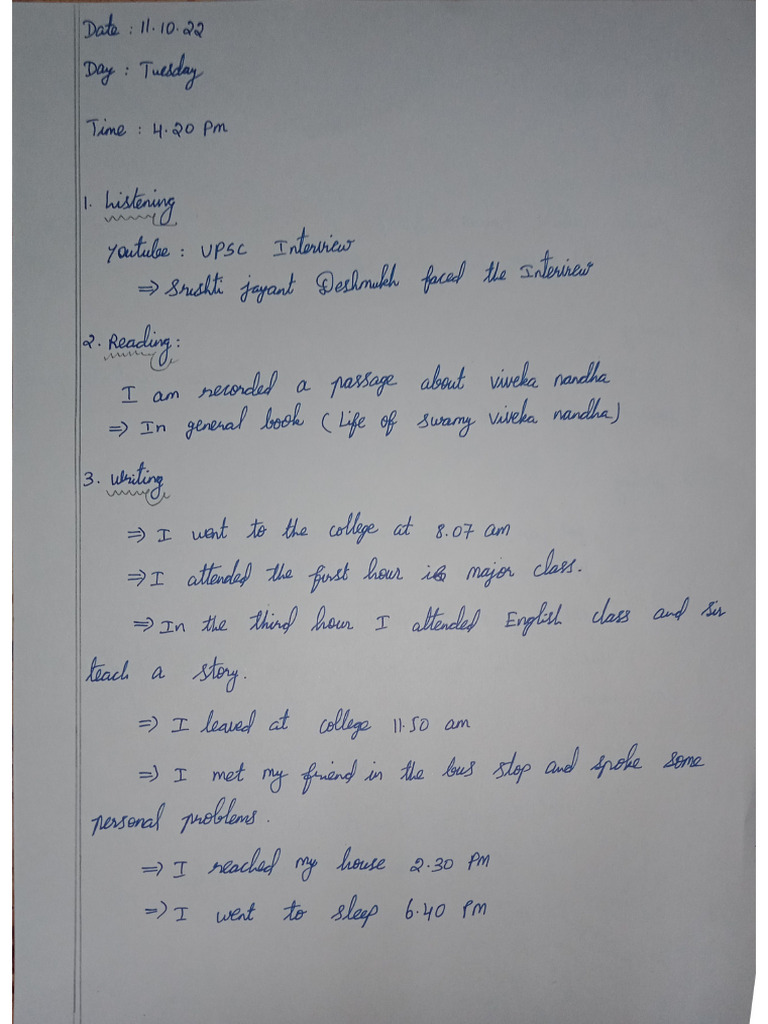 Date : 11.10.22
Day : Tuesday
Time : 4.20 Pm
1. Listening
Youtube : UPSC Interview
⇒ Srushti jayant Deshmukh faced the Interview
2. Reading :
I am recorded a passage about viveka nandha
⇒ In general book (Life of swamy viveka nandha)
3. Writing
⇒ I went to the college at 8.07 am
⇒ I attended the first hour is major class.
⇒ In the third hour I attended English class and sir
teach a story.
⇒ I leaved at college 11.50 am
⇒ I met my friend in the bus stop and spoke some
personal problems.
⇒ I reached my house 2.30 PM
⇒ I went to sleep 6.40 PM